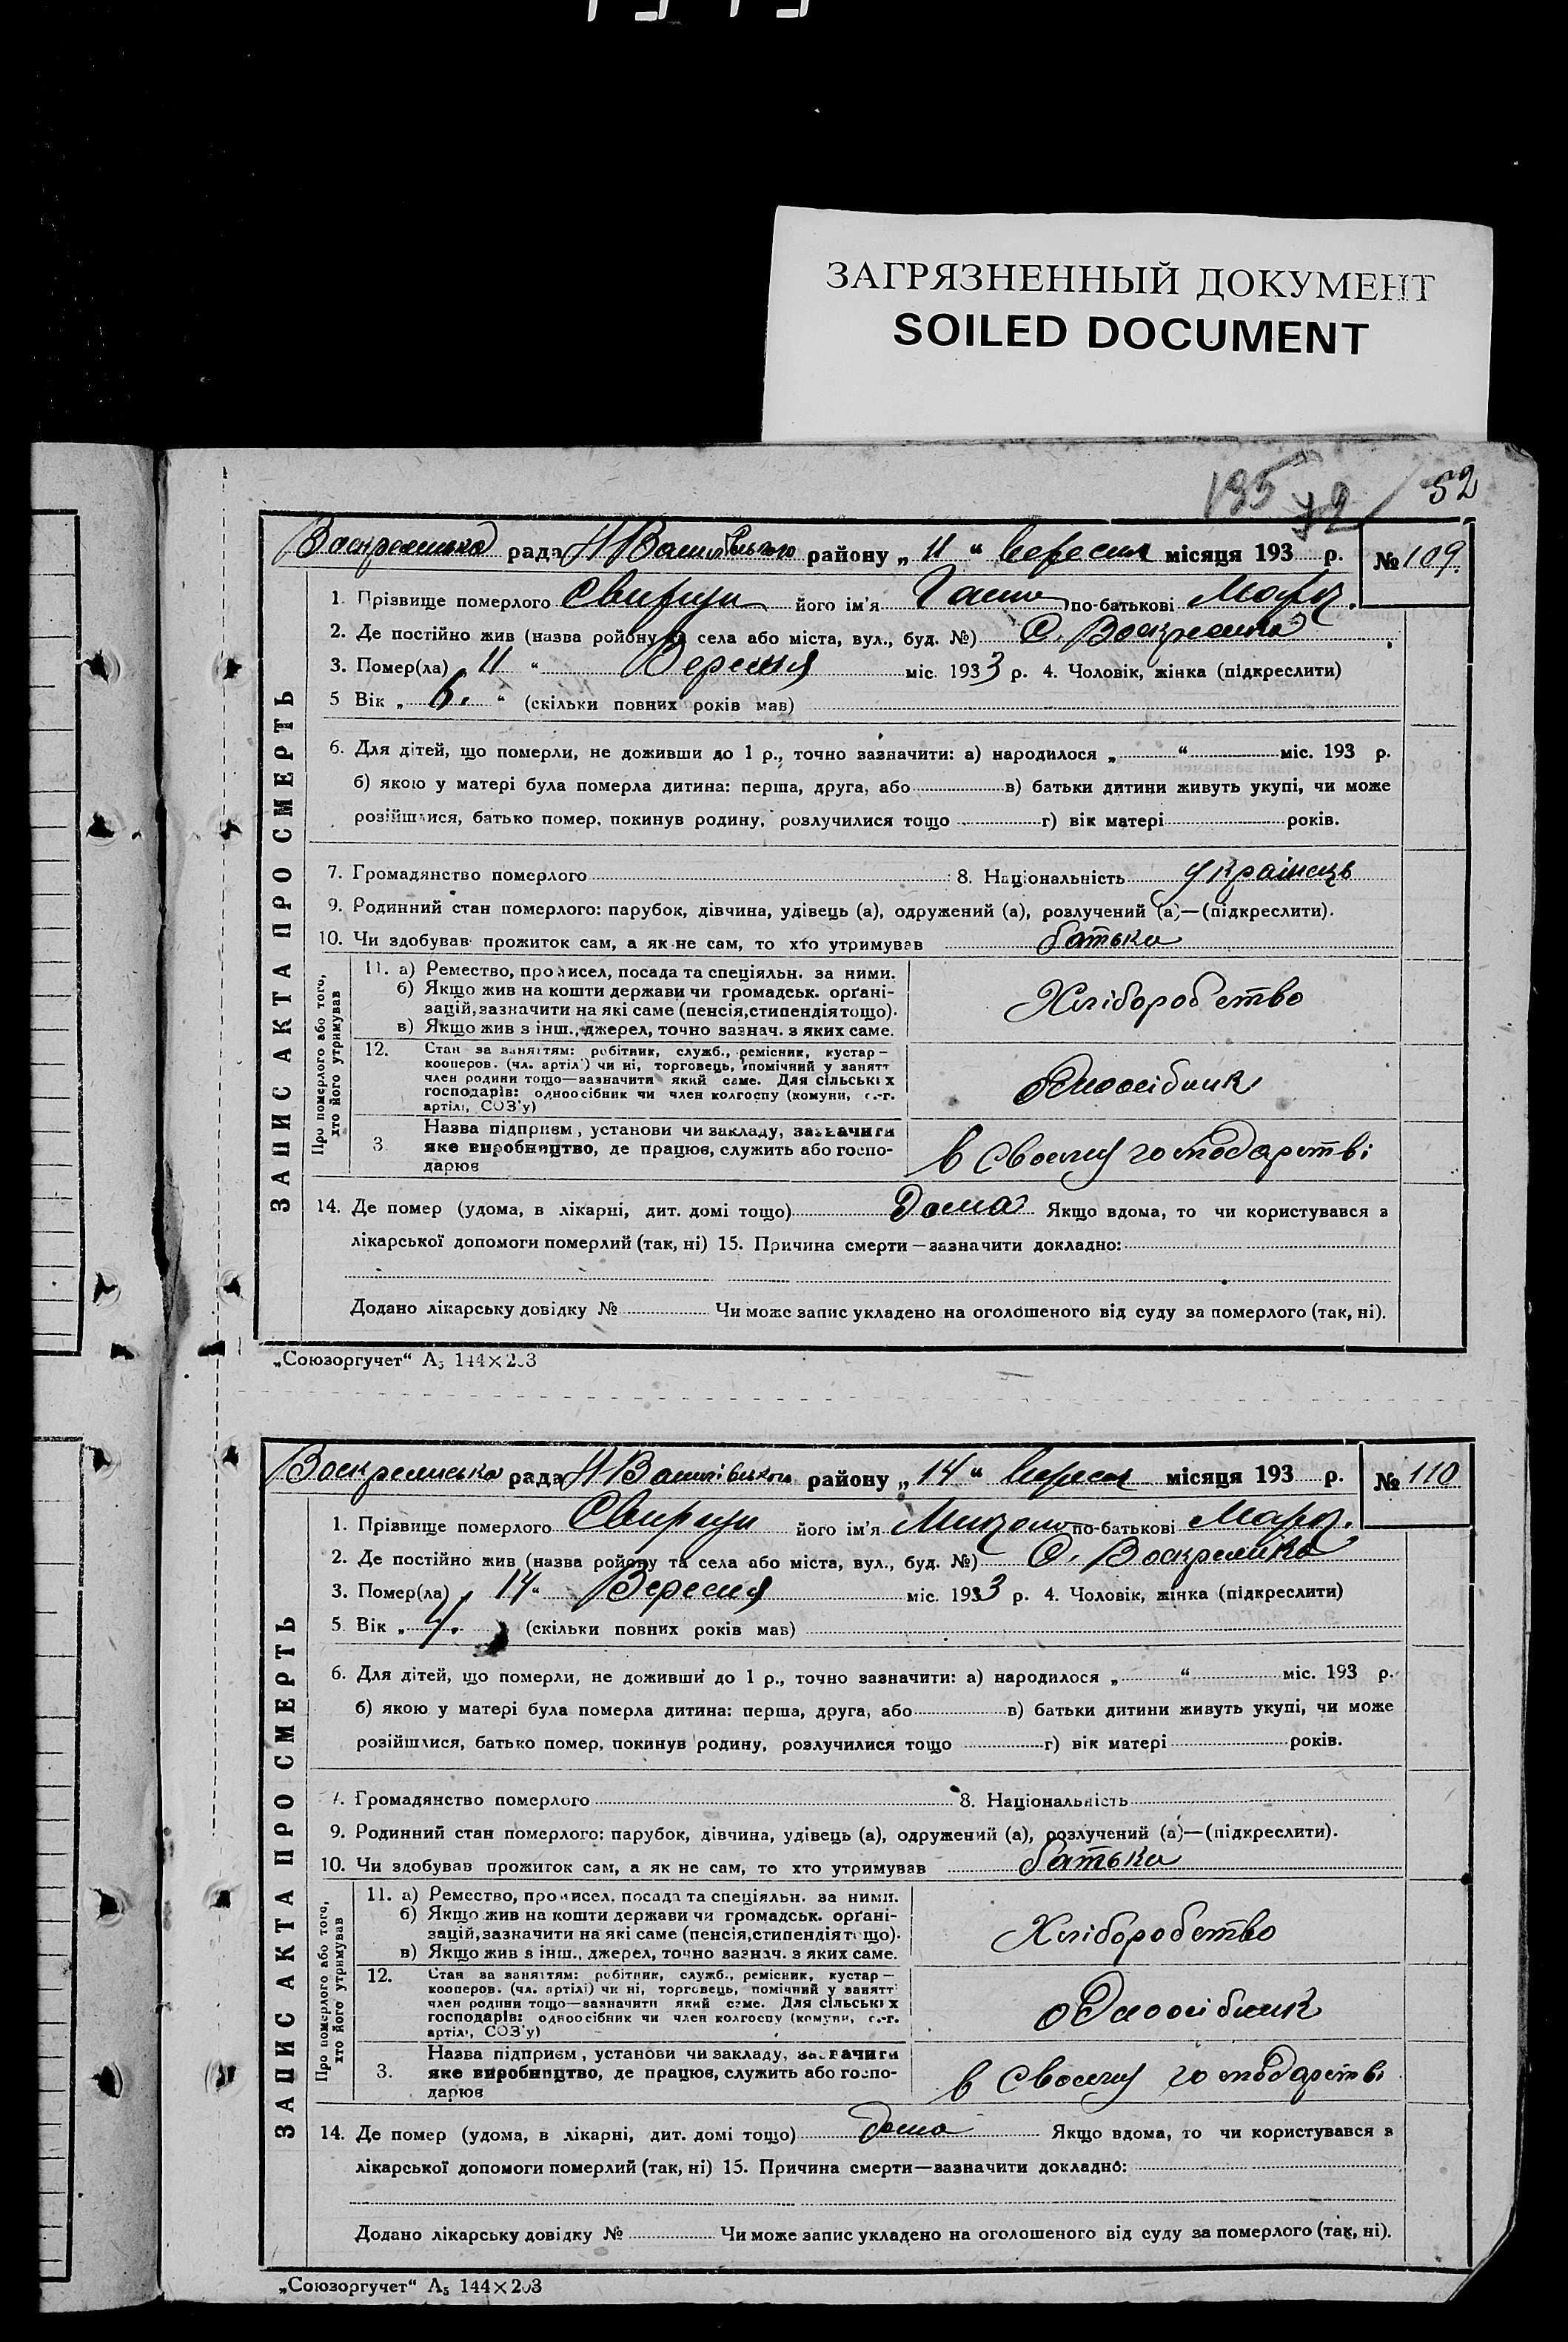 ЗАГРЯЗНЕННЫЙ ДОКУМЕНТ
SOILED DOCUMENT
195 52
72
рада району „ 11 “ вересня місяця 193 р. № 109.
ЗАПИС АКТА ПРО СМЕРТЬ
1. Прізвище померлого його ім'я по-батькові
2. Де постійно жив (назва ройону та села або міста, вул., буд. №) С.
3. Помер(ла) „ 11 “ Вересня міс. 1933 р. 4. Чоловік, жінка (підкреслити)
5 Вік „ 6. “ (скільки повних років мав)
6. Для дітей, що померли, не доживши до 1 р., точно зазначити: а) народилося „ “ міс. 193 р.
б) якою у матері була померла дитина: перша, друга, або в) батьки дитини живуть укупі, чи може
розійшлися, батько помер, покинув родину, розлучилися тощо г) вік матері років.
7. Громадянство померлого 8. Національність українець
9. Родинний стан померлого: парубок, дівчина, удівець (а), одружений (а), розлучений (а)—(підкреслити).
10. Чи здобував прожиток сам, а як не сам, то хто утримував батько
Про померлого або того, хто його утримував
11. а) Ремество, промисел, посада та спеціяльн. за ними.
б) Якщо жив на кошти держави чи громадськ. орґані-
зацій, зазначити на які саме (пенсія, стипендія тощо).
в) Якщо жив з інш., джерел, точно зазнач. з яких саме.
Хліборобство
12. Стан за заняттям: робітник, служб., ремісник, кустар—
кооперов. (чл. артілі) чи ні, торговець, помічний у занятт
член родини тощо—зазначити який саме. Для сільських
господарів: одноосібник чи член колгоспу (комуни, с.-г.
артілі, СОЗ'у)
одноосібник
3 Назва підприєм, установи чи закладу, зазначити
яке виробництво, де працює, служить або госпо-
дарює
в своему господарстві
14. Де помер (удома, в лікарні, дит. домі тощо) Дома Якщо вдома, то чи користувався з
лікарської допомоги померлий (так, ні) 15. Причина смерти—зазначити докладно:
Додано лікарську довідку № Чи може запис укладено на оголошеного від суду за померлого (так, ні).
„Союзоргучет“ А5 144×203
рада району „ 14 “ місяця 193 р. № 110
ЗАПИС АКТА ПРО СМЕРТЬ
1. Прізвище померлого його ім'я по-батькові
2. Де постійно жив (назва ройону та села або міста, вул., буд. №) С.
3. Помер(ла) „ 14 “ Вересня міс. 1933 р. 4. Чоловік, жінка (підкреслити)
5. Вік „ 4. (скільки повних років мав)
6. Для дітей, що померли, не доживши до 1 р., точно зазначити: а) народилося „ “ міс. 193 р.
б) якою у матері була померла дитина: перша, друга, або в) батьки дитини живуть укупі, чи може
розійшлися, батько помер, покинув родину, розлучилися тощо г) вік матері років.
7. Громадянство померлого 8. Національність
9. Родинний стан померлого: парубок, дівчина, удівець (а), одружений (а), розлучений (а)—(підкреслити).
10. Чи здобував прожиток сам, а як не сам, то хто утримував батько
Про померлого або того, хто його утримував
11. а) Ремество, промисел, посада та спеціяльн. за ними.
б) Якщо жив на кошти держави чи громадськ. орґані-
зацій, зазначити на які саме (пенсія, стипендія тощо).
в) Якщо жив з інш., джерел, точно зазнач. з яких саме.
Хліборобство
12. Стан за заняттям: робітник, служб., ремісник, кустар—
кооперов. (чл. артілі) чи ні, торговець, помічний у занятт
член родини тощо—зазначити який саме. Для сільських
господарів: одноосібник чи член колгоспу (комуни, с.-г.
артілі, СОЗ'у)
одноосібник
3. Назва підприєм, установи чи закладу, зазначити
яке виробництво, де працює, служить або госпо-
дарює
в своему господарстві
14. Де помер (удома, в лікарні, дит. домі тощо) дома Якщо вдома, то чи користувався з
лікарської допомоги померлий (так, ні) 15. Причина смерти—зазначити докладно:
Додано лікарську довідку № Чи може запис укладено на оголошеного від суду за померлого (так, ні).
„Союзоргучет“ А5 144×203